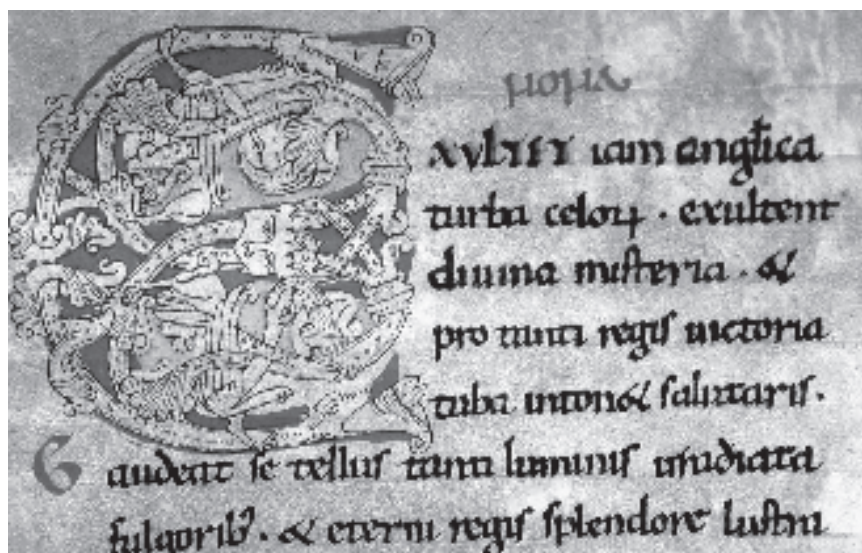 EXVLTET iam angl̄ica
turba celoꝝ · exultent
diuina miſteria · &
pro tanti regiſ uictoria
tuba inton& ſalutaris ·
Gaudeat ſe tellus tanti luminiſ irradiata
fulgorib᾽ · & eterni regiſ ſplendore luſtra